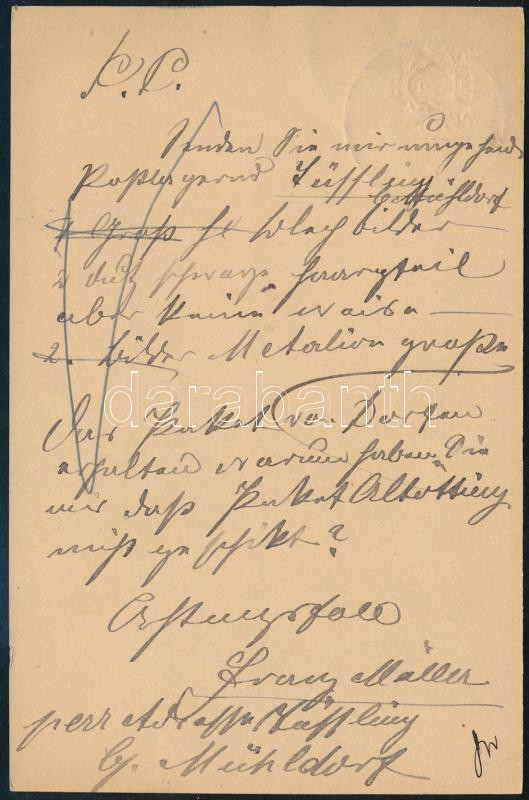 P. P.
Senden Sie mir umgehend
Postlagernd Tüssling
b. Mühldorf
1 Groß St Blechbilder
2 dutz schwarze haarzteil
aber keine waise
2. Bilder Metalion große
darabanth
Das Paket von Dorfen
erhalten warum haben Sie
mir daß Paket Altötting
nicht geschikt?
Achtungsfoll
Franz Müller
perr Adresse Tüssling
by. Mühldorf